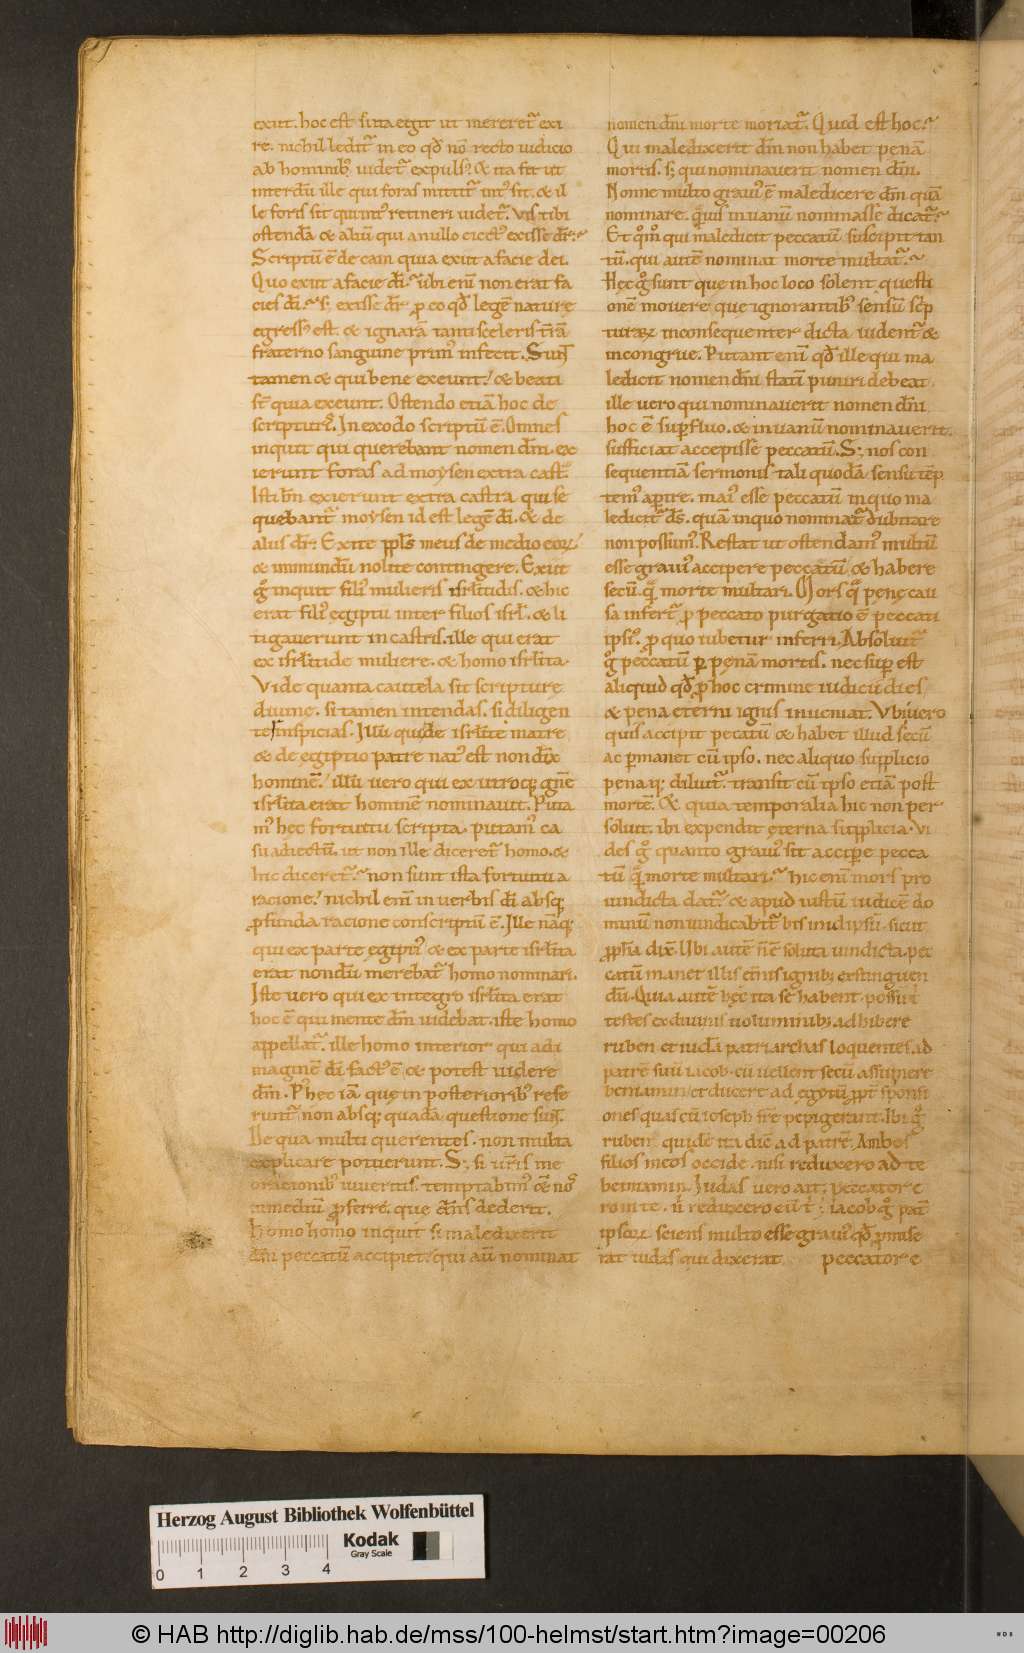 exiit. hoc est si ita egit ut mereret᷑ exi
re. nichil ledit᷑ in eo qđ nō recto iudicio
ab hominib; uidet᷑ expulsꝰ. & ita fit ut
interdū ille qui foras mittit᷑ intꝰ sit. & il
le foris sit qui intꝰ retineri uidet᷑. Vis tibi
ostendā & aliū qui a nullo eiectꝰ exisse dr̄.
Scriptū ē de cain quia exiit a facie dei.
Quo exiit a facie dī. ubi enī non erat fa
cies dī. s; exisse dr̄ ꝓ eo qđ legē nature
egressꝰ est. & ignarā tanti sceleris trā
fraterno sanguine primꝰ infecit. Sunt
tamen & qui bene exeunt. & beati
st̄ quia exeunt. Ostendo etiā hoc de
scripturis. In exodo scriptū ē. Omnes
inquit qui querebant nomen dn̄i. ex
ierunt foras ad moysen extra castͣ.
Isti bn̄ exierunt extra castra qui se
quebant᷑ moysen id est legē dī. & de
alus dr̄. Exite ppl̄s meus de medio eoꝝ
& inmundū nolite contingere. Exiit
gͦ inquit filiꝰ mulieris isrl̄itidis. & hic
erat filiꝰ egiptii inter filios isrl̄. & li
tigauerunt in castris. ille qui erat
ex isrl̄itide muliere. & homo isrl̄ita.
Vide quanta cautela sit scripture
diuine. si tamen intendas. si diligen
ter inspicias. Illū quidē isrl̄ite matre
& de egiptio patre natꝰ est non dix̄
hominē. illū uero qui ex utroq; gn̄e
isrl̄ita erat hominē nominauit. Puta
mꝰ hec fortuitu scripta. putamꝰ ca
su adiectū. ut non ille diceret᷑ homo. &
hic diceret᷑. non sunt ista fortuitu a
racione. nichil enī in uerbis dī absq;
ꝓfunda racione conscriptū ē. Ille nāq;
qui ex parte egiptiꝰ & ex parte isrl̄ita
erat nondū merebat᷑ homo nominari.
Iste uero qui ex integro isrl̄ita erat
hoc ē qui mente dm̄ uidebat. iste homo
appellat᷑. ille homo interior qui ad i
maginē dī factꝰ ē & potest uidere
dm̄. Pꝰ hec iā que in posterioribꝰ refe
runt᷑ non absq; quadā questione sunt.
De qua multi querentes. non multa
explicare potuerunt. S; si ur̄is me
oracionibꝰ iuueritis. temptabimꝰ & nos
in mediū ꝓferre. que dn̄s dederit.
Homo homo inquit si maledixerit
dm̄ peccatū accipiet. qui aū nominat
nomen dn̄i morte moriat᷑. Quid est hoc.
Qui maledixerit dm̄ non habet penā
mortis. s; qui nominauerit nomen dn̄i.
Nonne multo grauiꝰ ē maledicere dm̄ quā
nominare. quāuis in uanū nominasse dicat᷑.
Et qͦmͦ qui maledicit peccatū suscipit tan
tū. qui autē nominat morte multat᷑.
Hec gͦ sunt que in hoc loco solent questi
onē mouere que ignorantibꝰ sensū scp
turaꝝ inconsequenter dicta uident᷑ &
incongrue. Putant enī qđ ille qui ma
ledicit nomen dn̄i statī puniri debeat.
ille uero qui nominauerit nomen dn̄i
hoc ē suꝑfluo. & in uanū nominauerit.
sufficiat accepisse peccatū. S; nos con
sequentiā sermonis tali quodā sensu tēp
temꝰ aꝑire. maiꝰ esse peccatū in quo ma
ledicit᷑ ds̄. quā in quo nominat᷑ dubitare
non possumꝰ. Restat ut ostendamꝰ multū
esse grauiꝰ accipere peccatū & habere
secū. quā morte multari. Mors q̄ penę cau
sa infert᷑ ꝓ peccato purgatio ē peccati
ipsiꝰ. ꝓ quo iubetur inferri. Absoluit᷑
gͦ peccatū ꝑ penā mortis. nec suꝑ est
aliquid qđ ꝓ hoc crimine iudicii dies
& pena eterni ignis inueniat. Vbi uero
quis accipit pecatū & habet illud secū
ac ꝑmanet cū ipso. nec aliquo supplicio
penaq; diluit᷑. transit cū ipso etiā post
mortē. & quia temporalia hic non per
soluit. ibi expendit ęterna supplicia. Vi
des gͦ quanto grauiꝰ sit accipe pecca
tū quā morte multari. hic enī mors pro
uindicta dat᷑. & apud iustū iudicē do
minū non uindicabit᷑ bis in id ipsū. sicut
ꝓph̄a dix̄. Vbi autē n̄ ē soluta uindicta. pec
catū manet illis etn̄is ignib; exstinguen
dū. Quia autē hec ita se habent. possūt
testes ex diuinis uoluminib; adhibere
ruben et iudā patriarchas loquentes. ad
patrē suū iacob. cū uellent secū assumere
beniamin. et ducere ad egyptū ꝓpt̄ sponsi
ones quas cū ioseph fr̄e pepigerunt. Ibi gͦ
ruben quidē ita dic̄ ad patrē. Ambos
filios meos occide. nisi reduxero ad te
beniamin. Iudas uero ait. peccator e
ro in te. n̄ reduxero eū t̄. iacob gͦ pat̄
ipsoꝝ sciens multo esse grauiꝰ qđ ꝓmise
rat iudas qui dixerat peccator e
Herzog August Bibliothek Wolfenbüttel
Kodak
Gray Scale
0 1 2 3 4
© HAB http://diglib.hab.de/mss/100-helmst/start.htm?image=00206